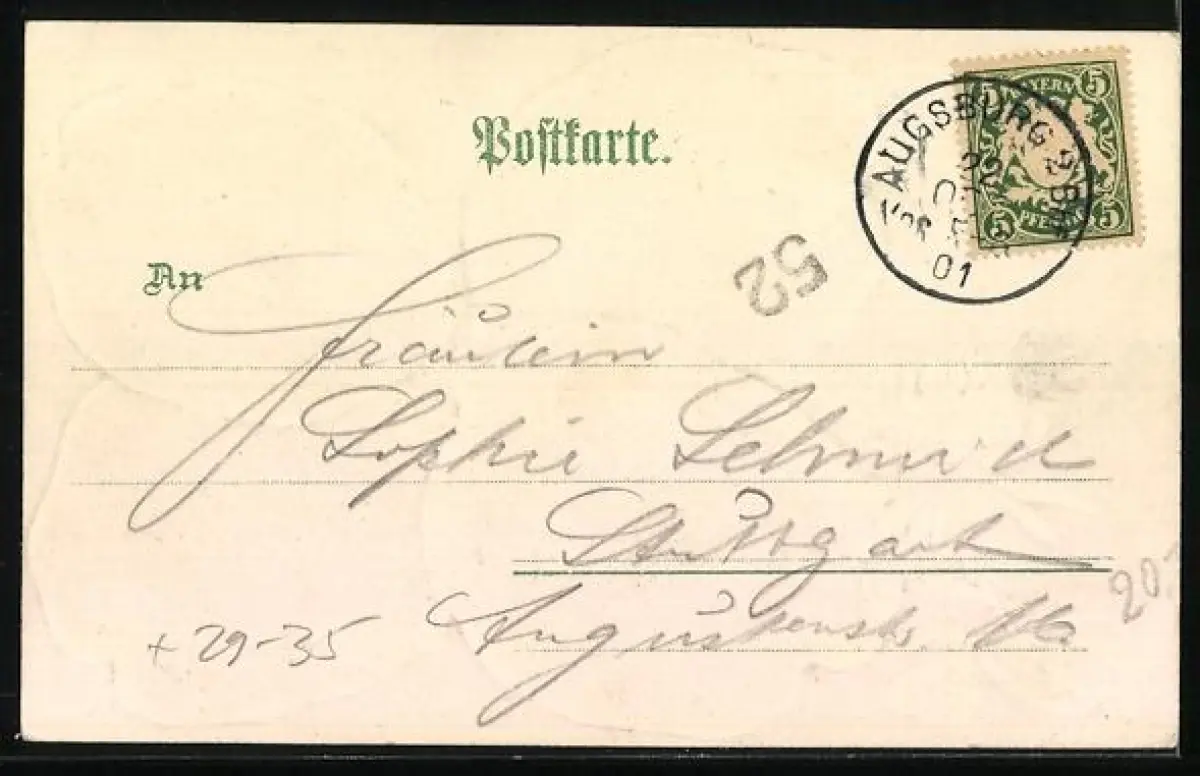 Postkarte.
BAYERN
5 5
5 PFENNIG 5
AUGSBURG 2
01
52
An
Fräulein
Sophie Schmid
Stuttgart
Augustenstr.
20
+ 29-35